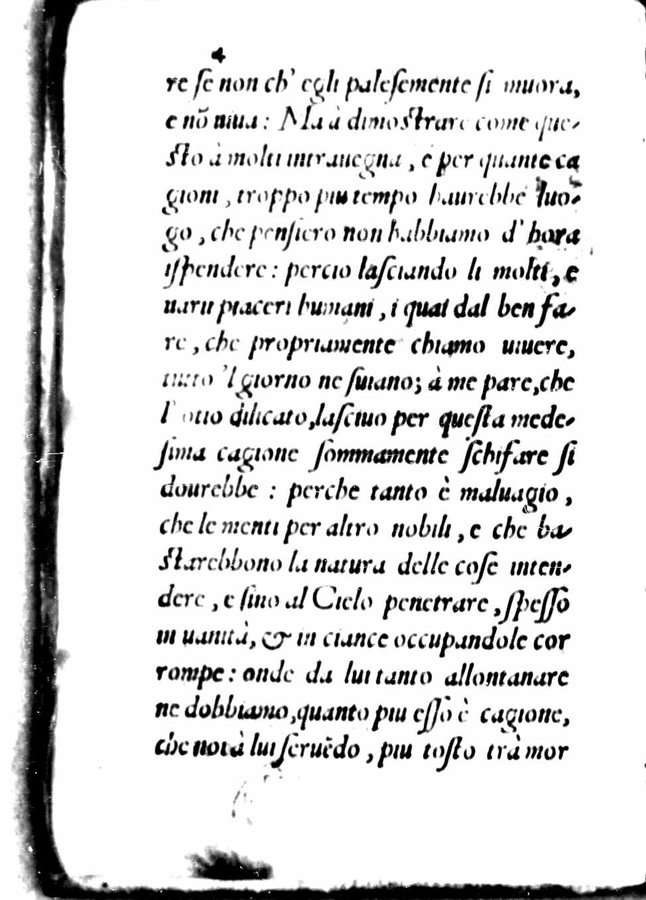 4
re se non ch' egli palesemente si muora,
e nō uiua: Ma à dimostrare come que-
sto à molti intrauegna, e per quante ca
gioni, troppo piu tempo haurebbe luo-
go, che pensiero non habbiamo d' hora
ispendere: percio lasciando li molti, e
uarii piaceri humani, i quai dal ben fa-
re, che propriamente chiamo uiuere,
tutto 'l giorno ne suiano; à me pare, che
l' otio dilicato, lasciuo per questa mede-
sima cagione sommamente schifare si
dourebbe: perche tanto è maluagio,
che le menti per altro nobili, e che ba-
starebbono la natura delle cose inten-
dere, e sino al Cielo penetrare, spesso
in uanità, & in ciance occupandole cor
rompe: onde da lui tanto allontanare
ne dobbiamo, quanto piu esso è cagione,
che noi à lui seruēdo, piu tosto trà mor